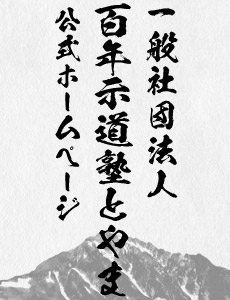 一般社団法人
百年示道塾とやま
公式ホームページ